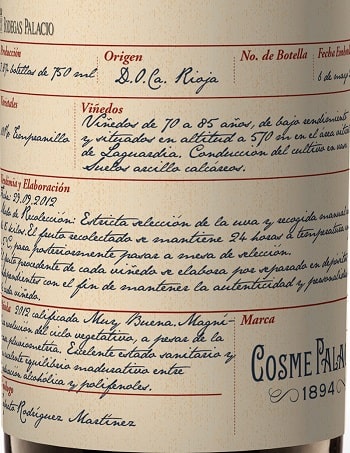 BODEGAS PALACIO
Producción
Origen
No. de Botella
Fecha
botellas de 750 ml
D.O.Ca. Rioja
6 de
Viñedos
Tempranillo
Viñedos de 70 a 85 años, de bajo rendimiento
y situados en altitud a 570 m en el área
de Laguardia. Conducción del cultivo en vaso.
Suelos arcillo calcáreos.
y Elaboración
29.09.2012
de Recolección: Estricta selección de la uva y recogida manual
kilos. El fruto recolectado se mantiene 24 horas a temperatura
para posteriormente pasar a mesa de selección.
procedente de cada viñedo se elabora por separado en
con el fin de mantener la autenticidad y
viñedo.
2012 calificada Muy Buena. Magní-
evolución del ciclo vegetativo, a pesar de la
pluviometría. Excelente estado sanitario y
equilibrio madurativo entre
alcohólica y polifenoles.
Marca
COSME
1894
Rodríguez Martínez